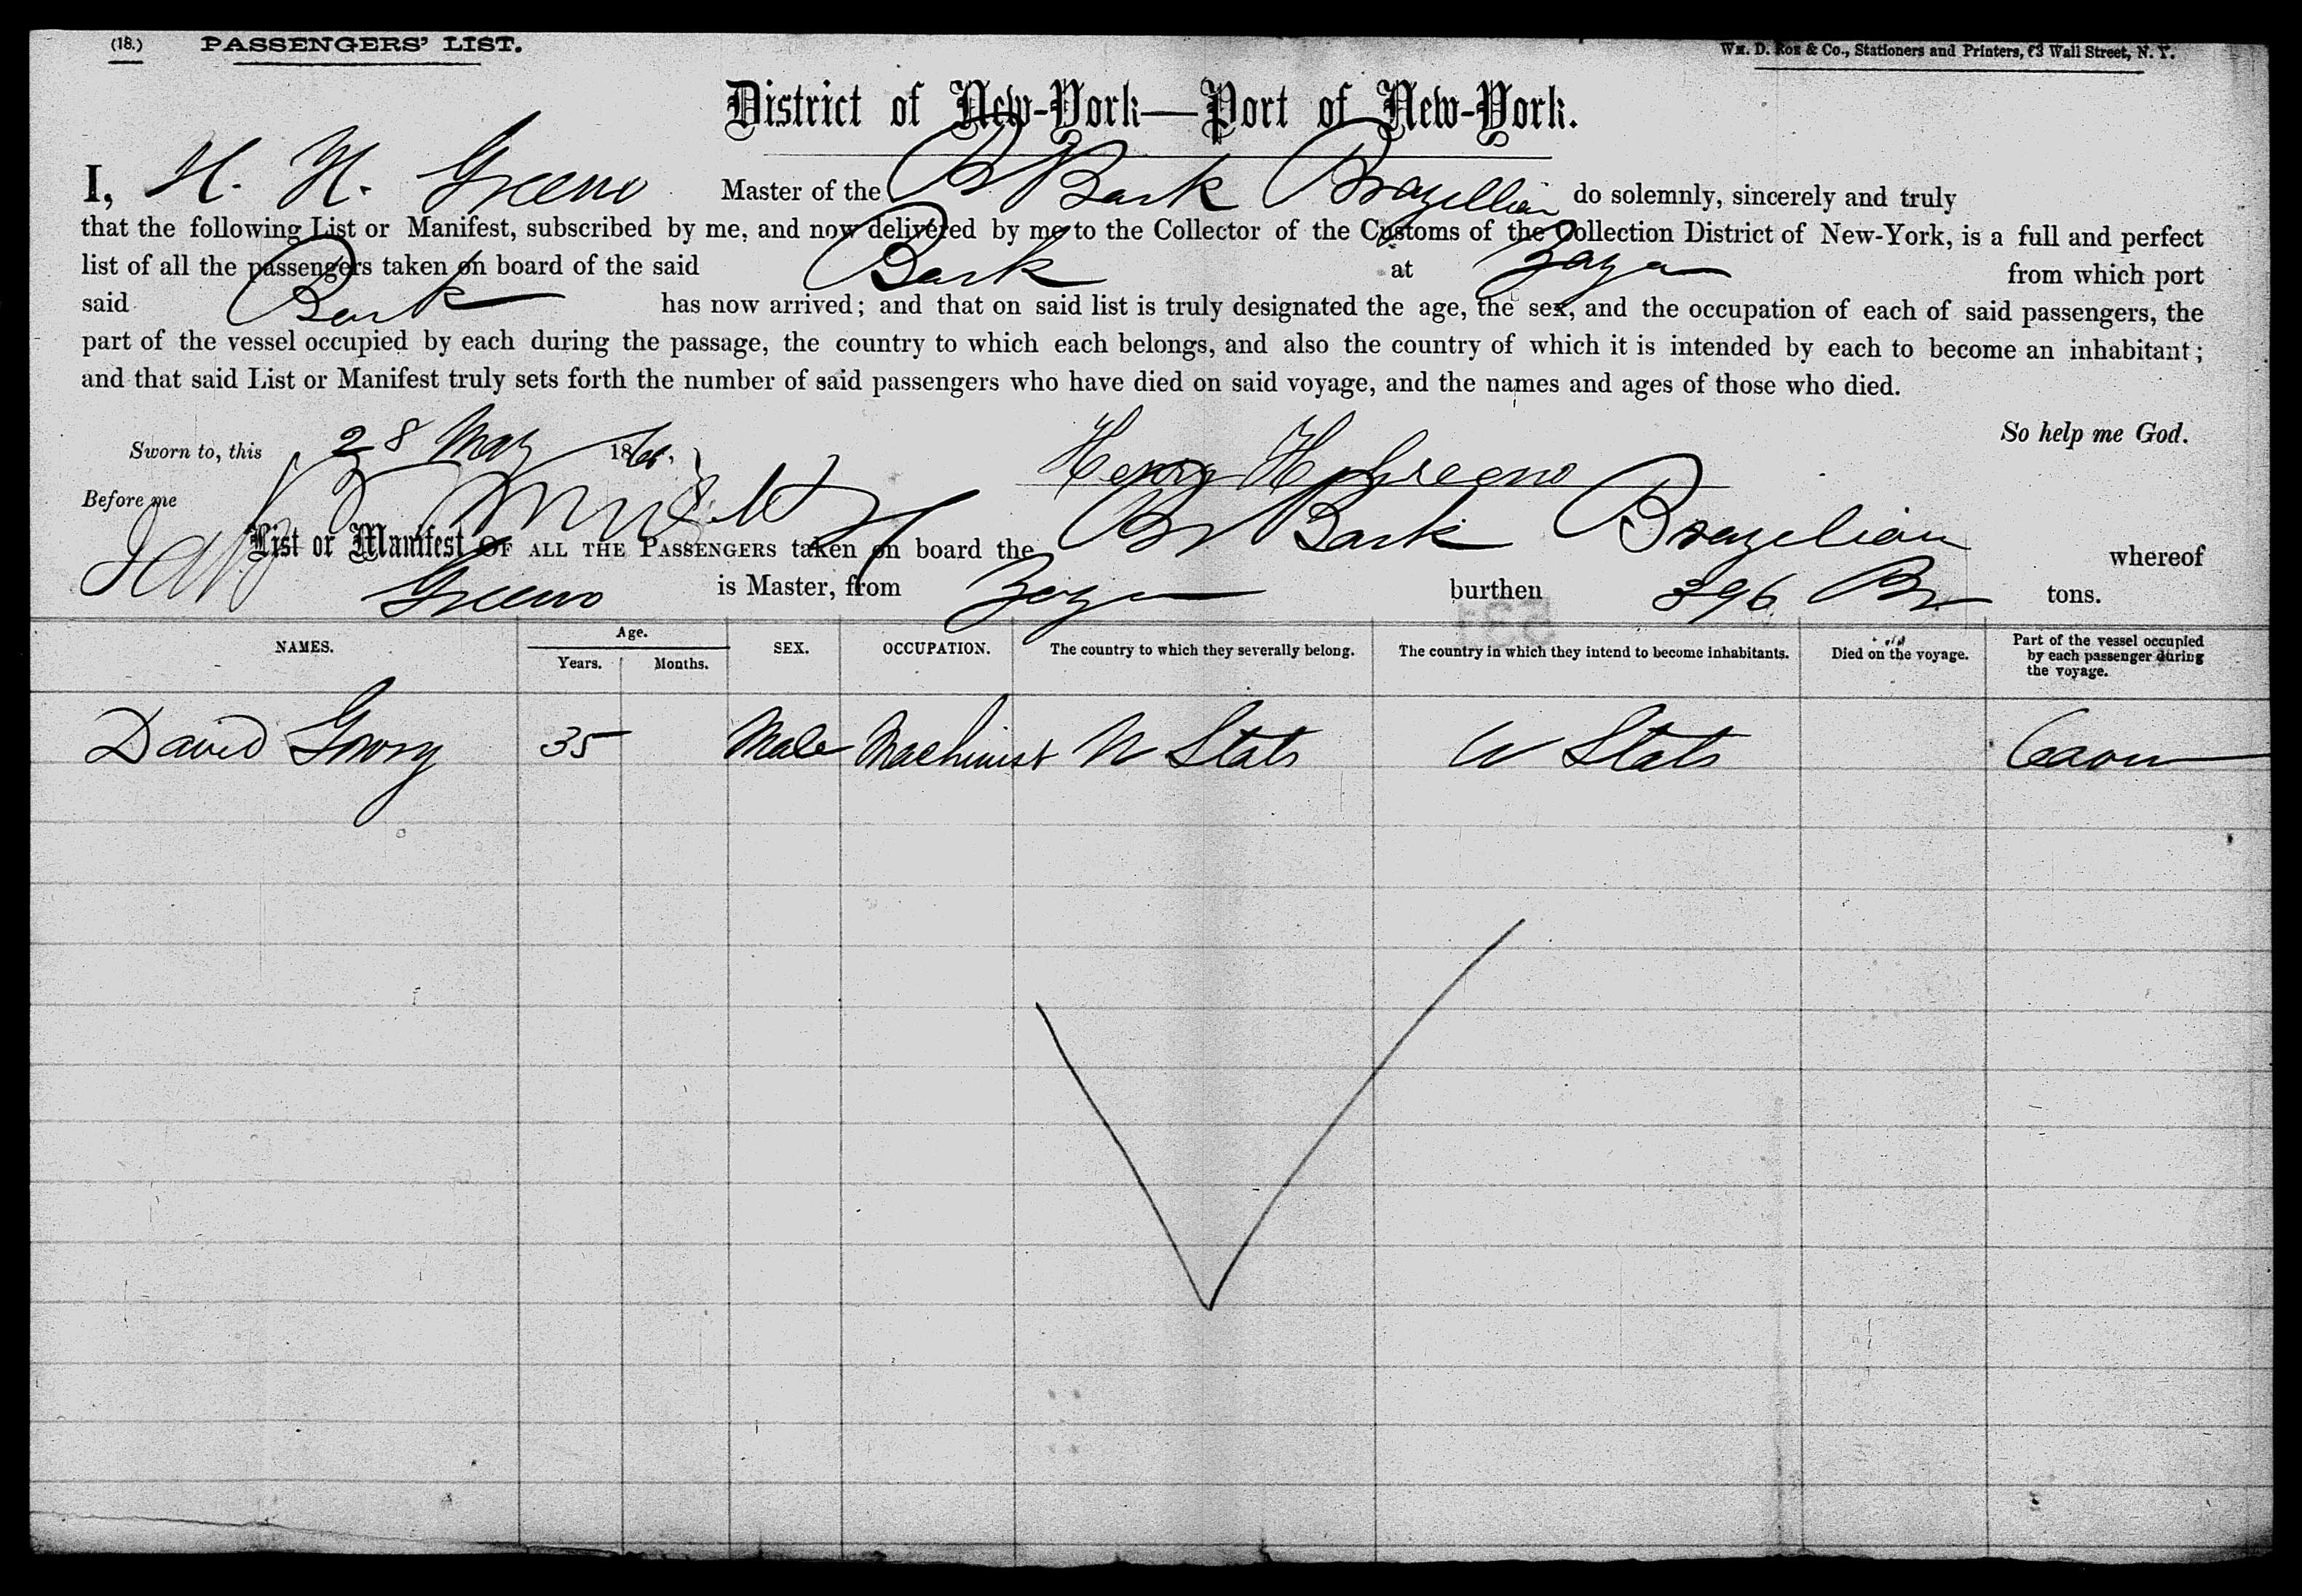 (18.) PASSENGERS' LIST. Wm. D. Roe & Co., Stationers and Printers, 63 Wall Street, N. Y.
District of New-York—Port of New-York.
I, H. H. Greeno Master of the Br Bark Brazellian do solemnly, sincerely and truly
that the following List or Manifest, subscribed by me, and now delivered by me to the Collector of the Customs of the Collection District of New-York, is a full and perfect
list of all the passengers taken on board of the said Bark at Zaza from which port
said Bark has now arrived; and that on said list is truly designated the age, the sex, and the occupation of each of said passengers, the
part of the vessel occupied by each during the passage, the country to which each belongs, and also the country of which it is intended by each to become an inhabitant;
and that said List or Manifest truly sets forth the number of said passengers who have died on said voyage, and the names and ages of those who died.
So help me God.
Sworn to, this 28 May 186
Henry H Greeno
Before me
List or Manifest OF ALL THE PASSENGERS taken on board the Br Bark Brazelian whereof
Greeno is Master, from Zaza burthen 396 Br tons.
NAMES. Age. Years. Months. SEX. OCCUPATION. The country to which they severally belong. The country in which they intend to become inhabitants. Died on the voyage. Part of the vessel occupied by each passenger during the voyage.
David 35 Male Machinist U Stats U Stats